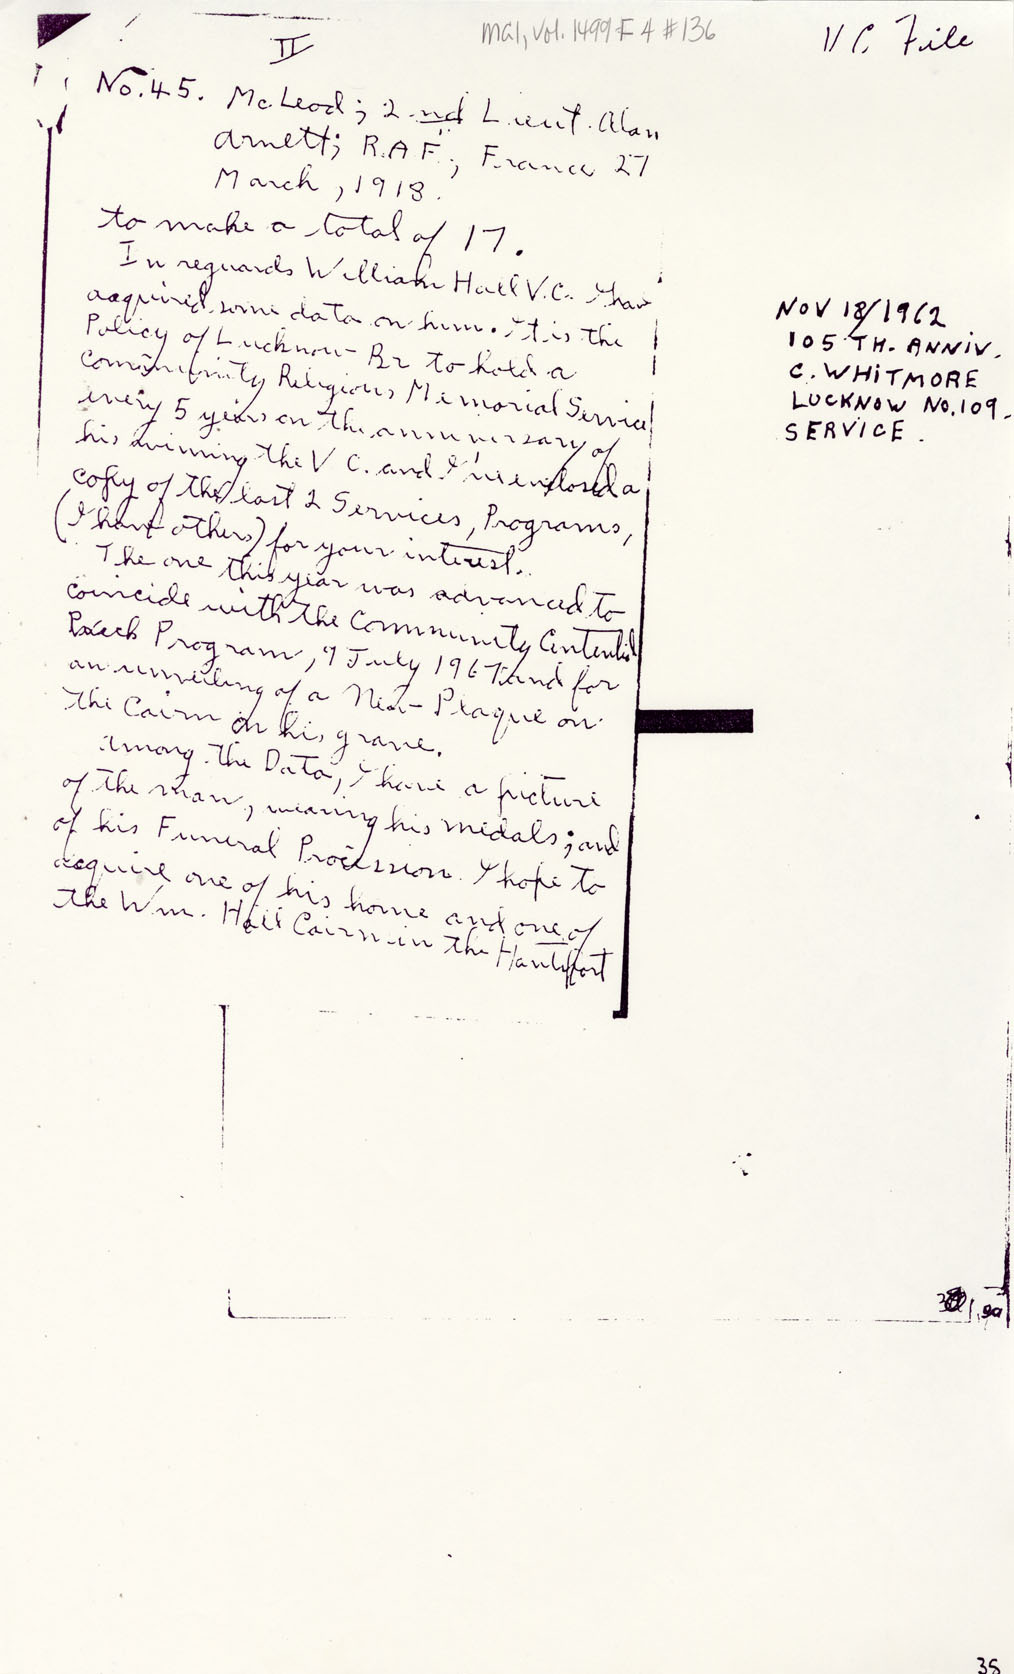 II
MG1, Vol. 1499 F 4 #136
VC File
No. 45. McLeod; 2nd Lieut. Alan
Arnett; R.A.F., France 27
March, 1918.
to make a total of 17.
In reguards William Hall V.C. I have
acquired some data on him. It is the
Policy of Lucknow Br to hold a
Community Religious Memorial Service
every 5 years on the anniversary of
his winning the V C. and I've enclosed a
copy of the last 2 Services, Programs,
(I have others) for your interest.
The one this year was advanced to
coincide with the Community Centennial
Program, 9 July 1967 and for
an unveiling of a New Plaque on
the Cairn on his grave.
Among the Data, I have a picture
of the man, wearing his medals; and
of his Funeral Procession. I hope to
acquire one of his home and one of
the Wm. Hall Cairn in the Hantsport
NOV 18/1962
105 TH. ANNIV.
C. WHITMORE
LUCKNOW NO. 109.
SERVICE.
38